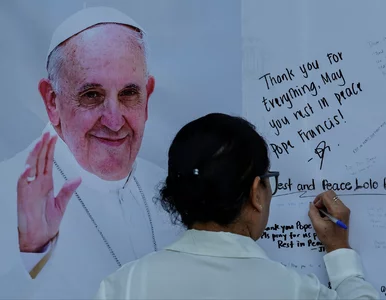 Thank you For
Everything. May
you rest in peace
Pope Francis!
Rest and Peace Lolo
Thank you Pope
pray for us
Rest in Peace